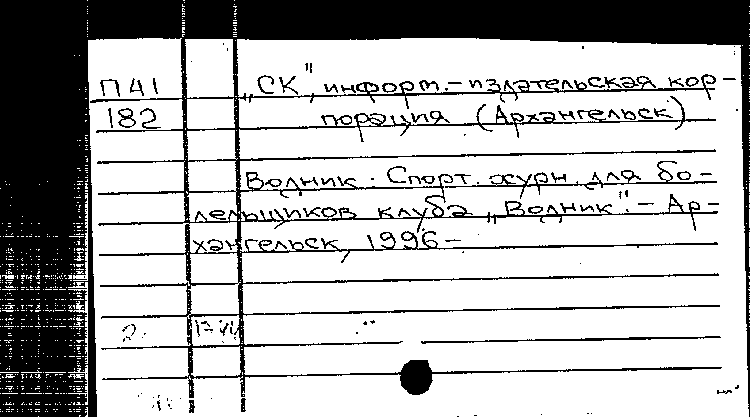 П41 „СК", информ.-издательская кор-
182 порация (Архангельск)
Водник. Спорт. журн. для бо-
лельщиков клуба „Водник". - Ар-
хангельск, 1996-
2.